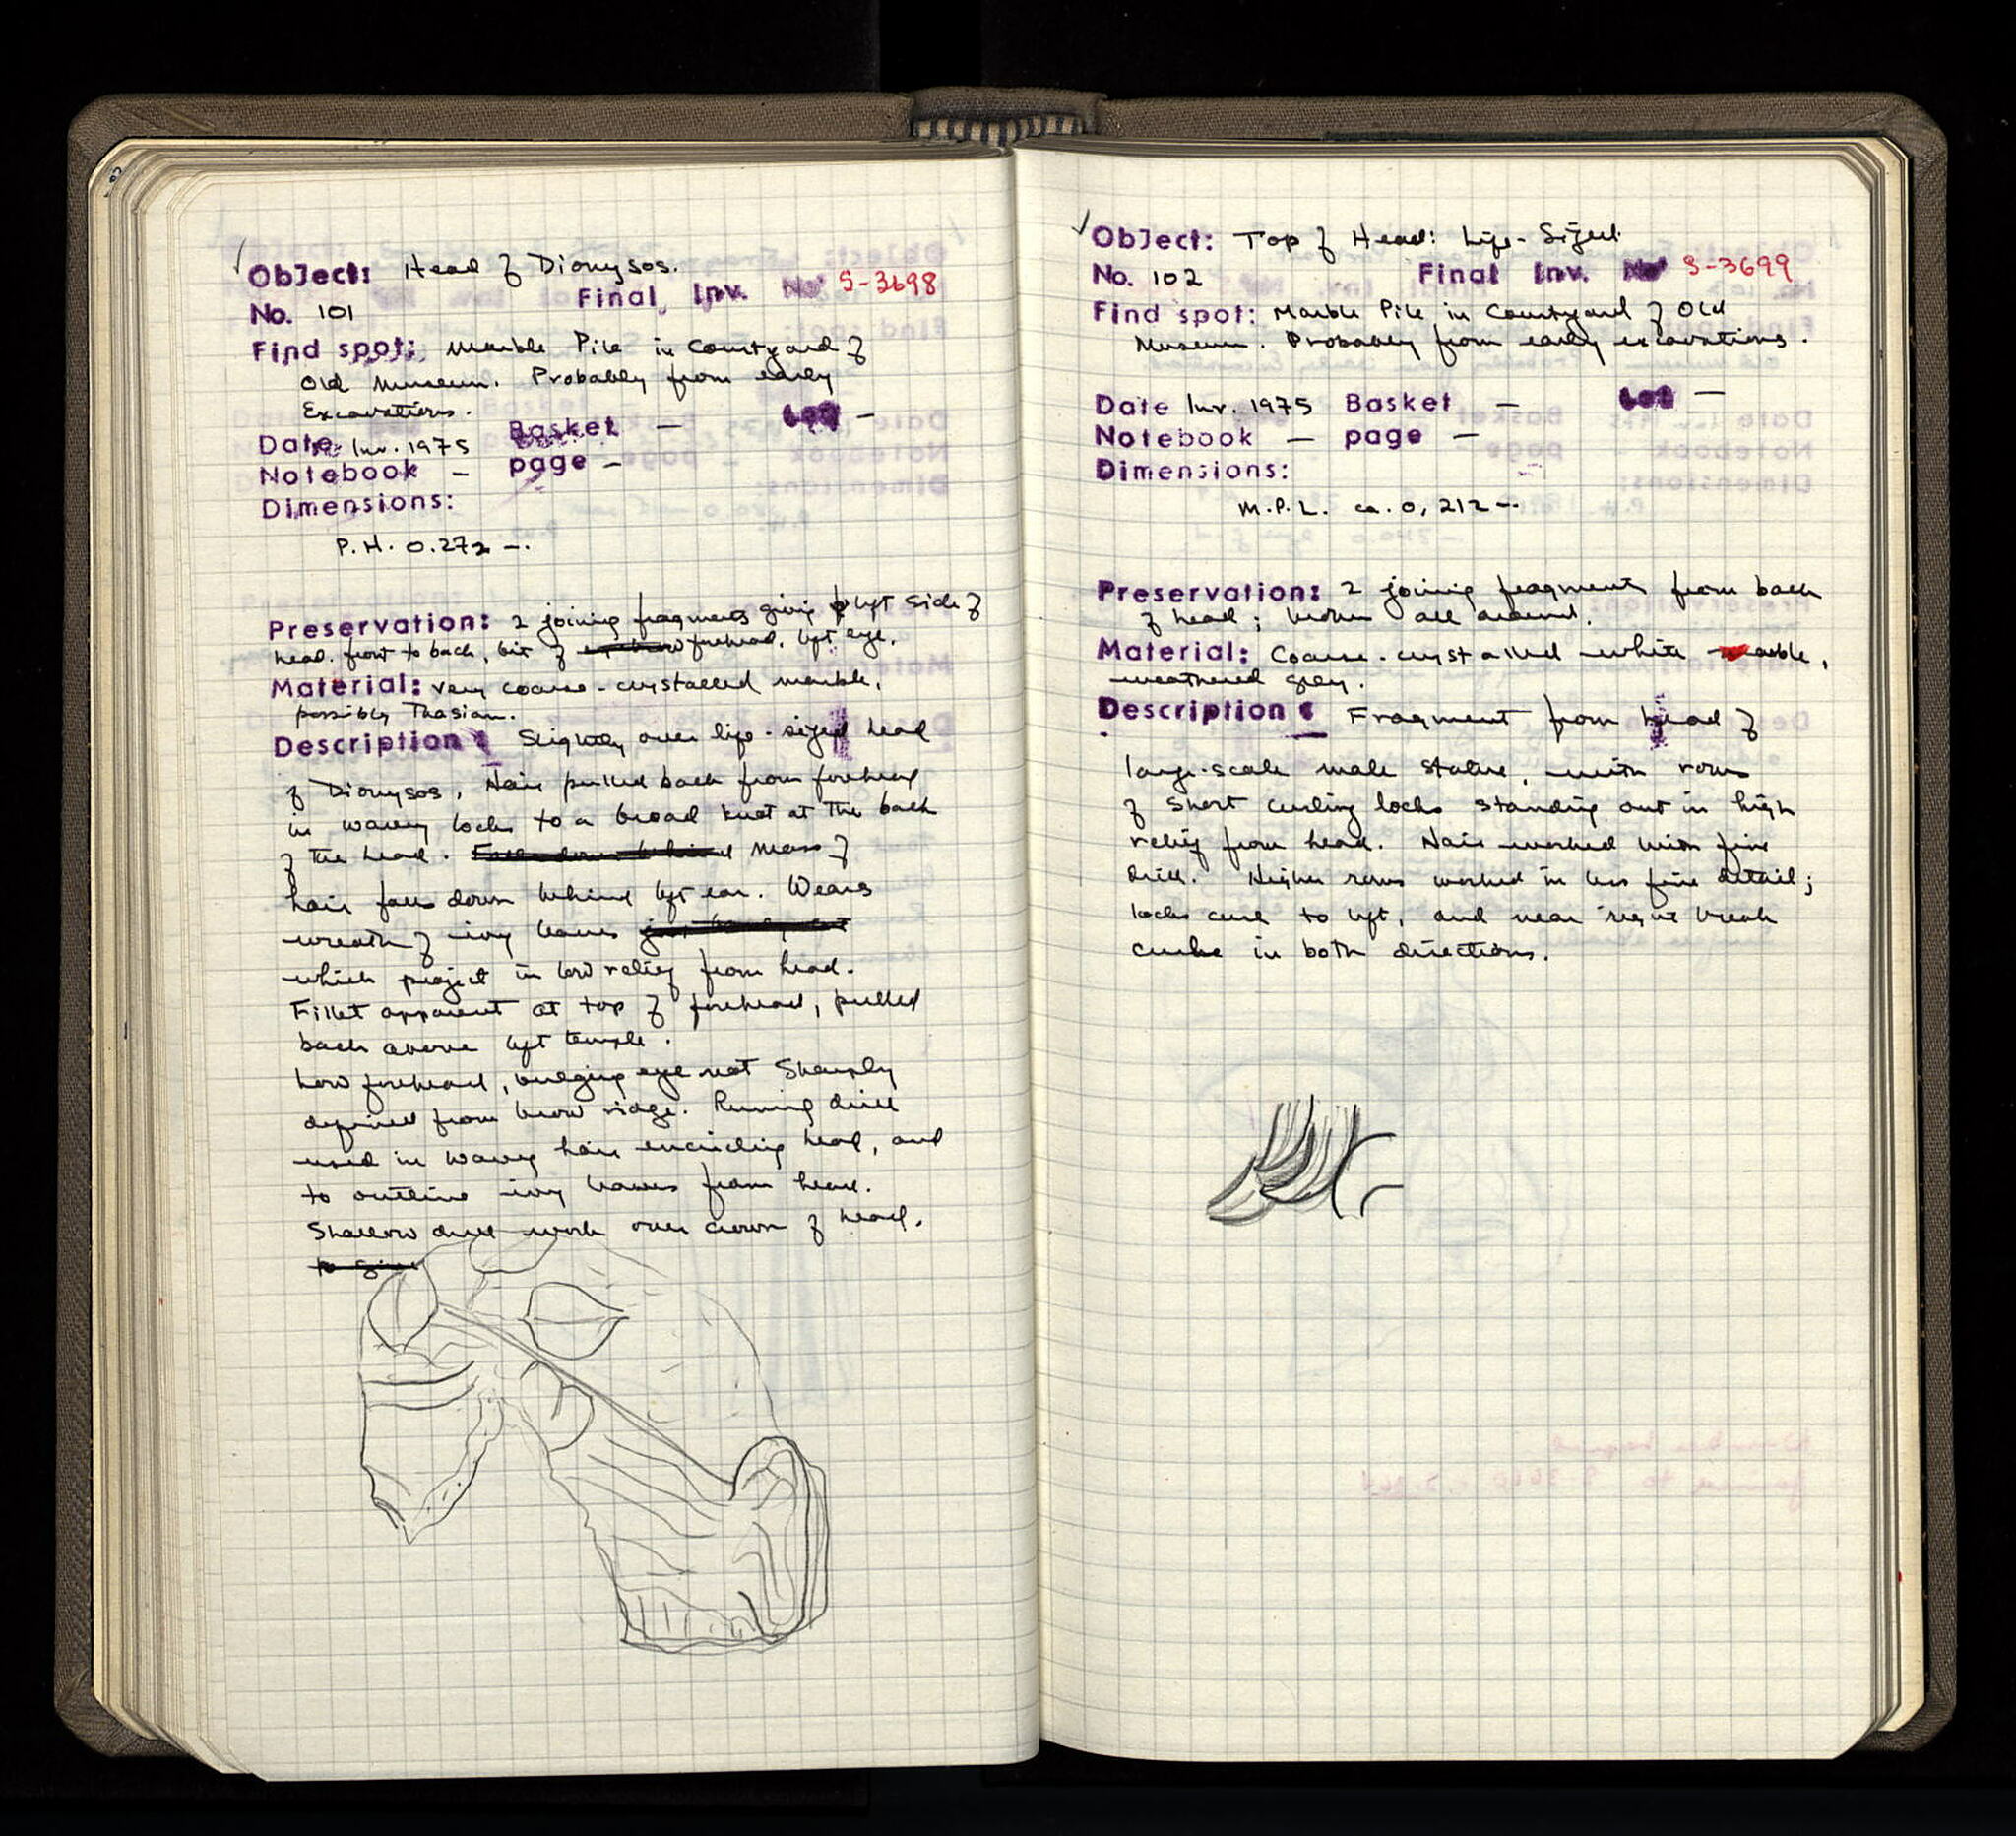 Object: Head of Dionysos.
No. 101 Final Inv. No S-3698
Find spot: Marble Pile in Courtyard of
Old Museum. Probably from early
Excavations.
Date Inv. 1975 Basket — Lot —
Notebook — page —
Dimensions:
P.H. 0.272 —.
Preservation: 2 joining fragments giving left side of
head. front to back, bit of forehead, left eye.
Material: very coarse-crystalled marble,
possibly Thasian.
Description: Slightly over life-sized head
of Dionysos, Hair pulled back from forehead
in wavy locks to a broad knot at the back
of the head. Falls down behind Mass of
hair falls down behind left ear. Wears
wreath of ivy leaves
which project in low relief from head.
Fillet apparent at top of forehead, pulled
back above left temple.
Low forehead, bulging eye not sharply
defined from brow ridge. Running drill
used in wavy hair encircling head, and
to outline ivy leaves from head.
Shallow drill work over crown of head.
to give
Object: Top of Head: Life-Sized.
No. 102 Final Inv. No S-3699
Find spot: Marble Pile in Courtyard of Old
Museum. Probably from early excavations.
Date Inv. 1975 Basket — Lot —
Notebook — page —
Dimensions:
M.P.L. ca. 0,212 —.
Preservation: 2 joining fragments from back
of head; broken all around.
Material: Coarse-crystalled white marble,
weathered grey.
Description: Fragment from head of
large-scale male statue, with rows
of short curling locks standing out in high
relief from head. Hair worked with fine
drill. Higher rows worked in less fine detail;
locks curl to left, and near right break
curve in both directions.